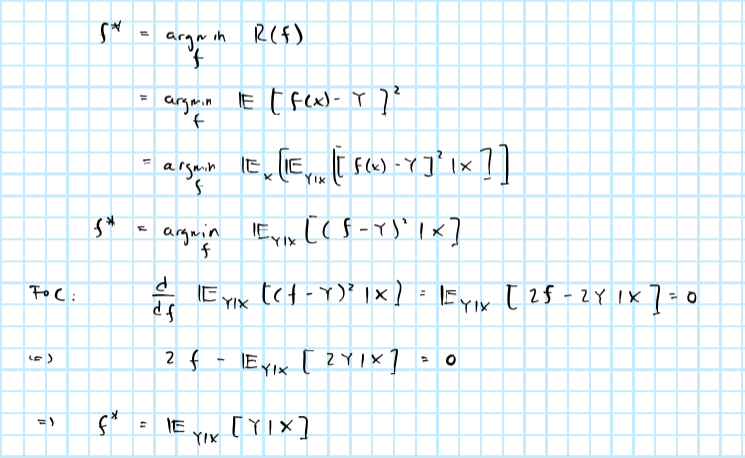 f* = argmin_f R(f)
= argmin_f 𝔼 [ f(x) - Y ]²
= argmin_f 𝔼_X [ 𝔼_{Y|X} [ [ f(x) - Y ]² | X ] ]
f* = argmin_f 𝔼_{Y|X} [ ( f - Y )² | X ]
FOC: d/df 𝔼_{Y|X} [ ( f - Y )² | X ] = 𝔼_{Y|X} [ 2f - 2Y | X ] = 0
(=) 2 f - 𝔼_{Y|X} [ 2Y | X ] = 0
=) f* = 𝔼_{Y|X} [ Y | X ]